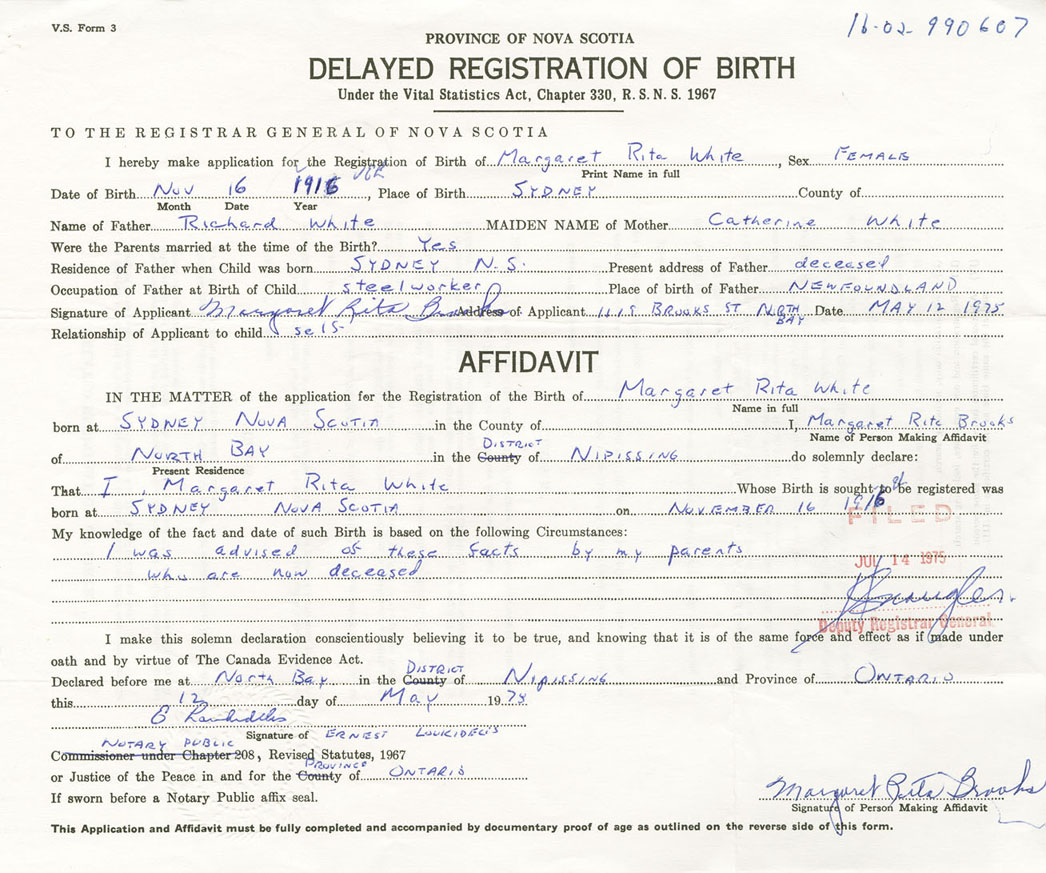 V.S. Form 3
16-02-990607
PROVINCE OF NOVA SCOTIA
DELAYED REGISTRATION OF BIRTH
Under the Vital Statistics Act, Chapter 330, R. S. N. S. 1967
TO THE REGISTRAR GENERAL OF NOVA SCOTIA
I hereby make application for the Registration of Birth of Margaret Rita White, Sex FEMALE
Print Name in full
Date of Birth Nov 16 1916, Place of Birth SYDNEY County of
Month Date Year
Name of Father Richard White MAIDEN NAME of Mother Catherine White
Were the Parents married at the time of the Birth? Yes
Residence of Father when Child was born SYDNEY N.S. Present address of Father deceased
Occupation of Father at Birth of Child steelworker Place of birth of Father NEWFOUNDLAND
Signature of Applicant Margaret Rita Brooks Address of Applicant 1115 BROOKS ST NORTH BAY Date MAY 12 1975
Relationship of Applicant to child self
AFFIDAVIT
IN THE MATTER of the application for the Registration of the Birth of Margaret Rita White
Name in full
born at SYDNEY NOVA SCOTIA in the County of I, Margaret Rita Brooks
Name of Person Making Affidavit
of NORTH BAY in the County DISTRICT of NIPISSING do solemnly declare:
Present Residence
That I, Margaret Rita White Whose Birth is sought to be registered was
born at SYDNEY NOVA SCOTIA on NOVEMBER 16 1916
FILED
My knowledge of the fact and date of such Birth is based on the following Circumstances:
I was advised of these facts by my parents
who are now deceased
JUL 14 1975
Deputy Registrar General
I make this solemn declaration conscientiously believing it to be true, and knowing that it is of the same force and effect as if made under
oath and by virtue of The Canada Evidence Act.
Declared before me at North Bay in the County DISTRICT of NIPISSING and Province of ONTARIO
this 12 day of May 1975
Signature of ERNEST LOUKIDELIS
NOTARY PUBLIC
Commissioner under Chapter 208, Revised Statutes, 1967
or Justice of the Peace in and for the County PROVINCE of ONTARIO
If sworn before a Notary Public affix seal.
Margaret Rita Brooks
Signature of Person Making Affidavit
This Application and Affidavit must be fully completed and accompanied by documentary proof of age as outlined on the reverse side of this form.